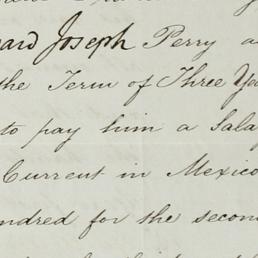 ard Joseph Perry a
the Term of Three Ye
to pay him a Sala
Current in Mexico
ndred for the secon